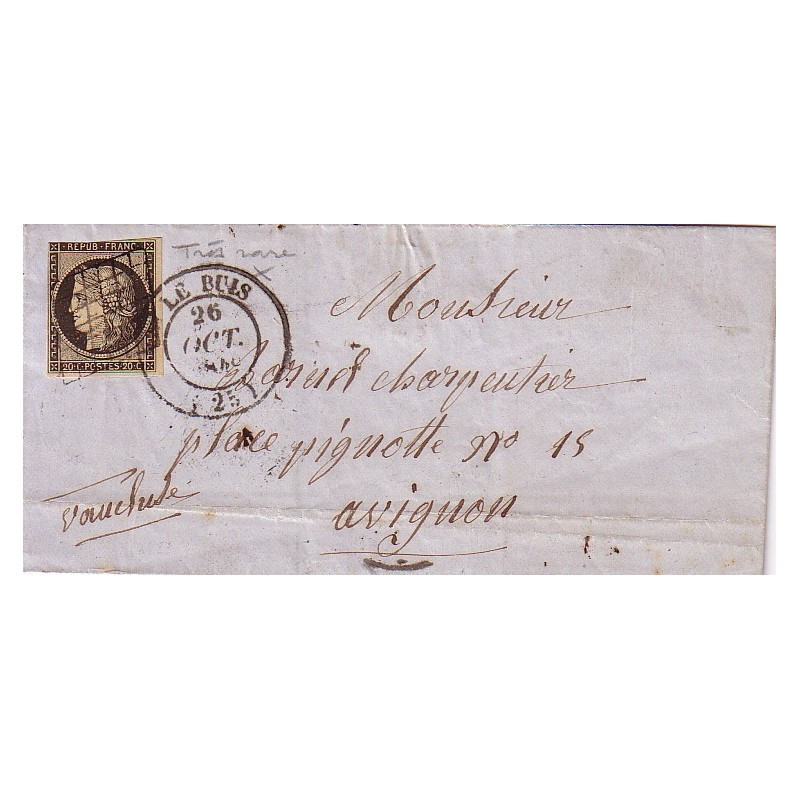 REPUB·FRANC
20·C·POSTES·20·C
Très rare
x
LE BUIS
26
OCT.
(25)
Monsieur
charpentier
place pignotte n° 15
avignon
Vaucluse